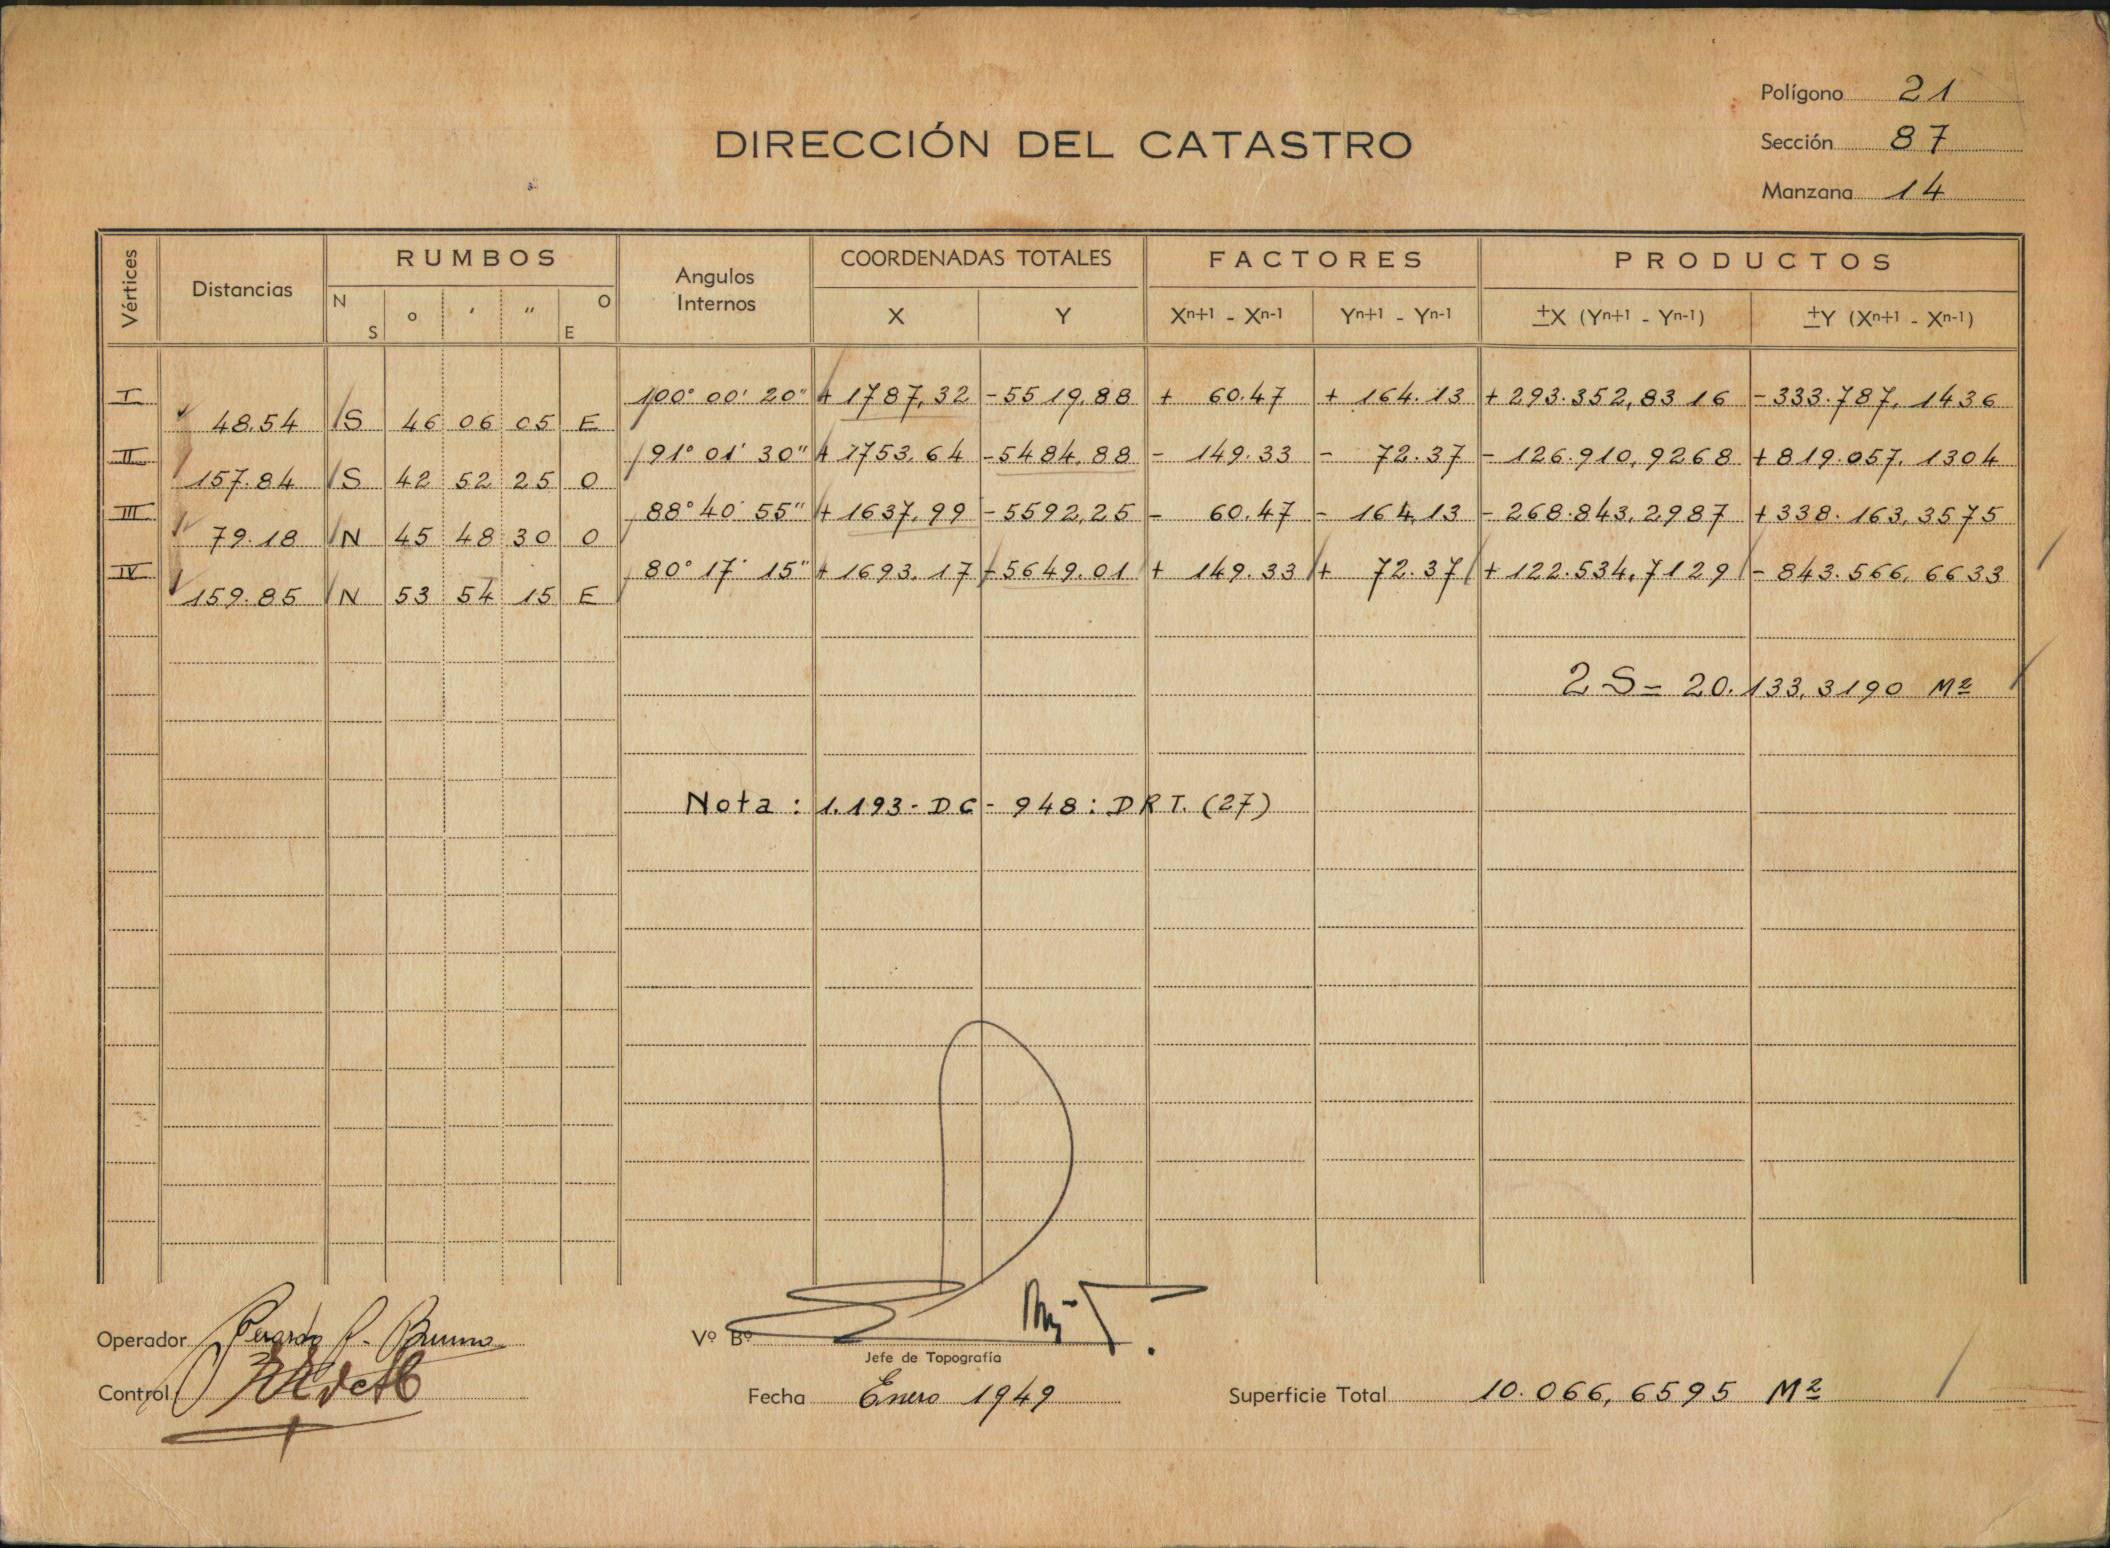 Polígono 21
DIRECCIÓN DEL CATASTRO
Sección 87
Manzana 14
Vértices Distancias RUMBOS Angulos Internos COORDENADAS TOTALES FACTORES PRODUCTOS
N S ° ' " O E X Y Xn+1 - Xn-1 Yn+1 - Yn-1 ±X (Yn+1 - Yn-1) ±Y (Xn+1 - Xn-1)
I 100° 00' 20" + 1787,32 - 5519,88 + 60.47 + 164.13 + 293.352,8316 - 333.787,1436
48.54 S 46 06 05 E
II 91° 01' 30" + 1753.64 - 5484.88 - 149.33 - 72.37 - 126.910,9268 + 819.057,1304
157.84 S 42 52 25 O
III 88° 40' 55" + 1637,99 - 5592,25 - 60.47 - 164.13 - 268.843,2987 + 338.163,3575
79.18 N 45 48 30 O
IV 80° 17' 15" + 1693.17 - 5649.01 + 149.33 + 72.37 + 122.534,7129 - 843.566,6633
159.85 N 53 54 15 E
2 S = 20.133,3190 M2
Nota : 1.193 - DC - 948 : DRT. (27)
Operador Gerardo P. Bruno
Vº Bº
Jefe de Topografía
Control
Fecha Enero 1949
Superficie Total 10.066,6595 M2